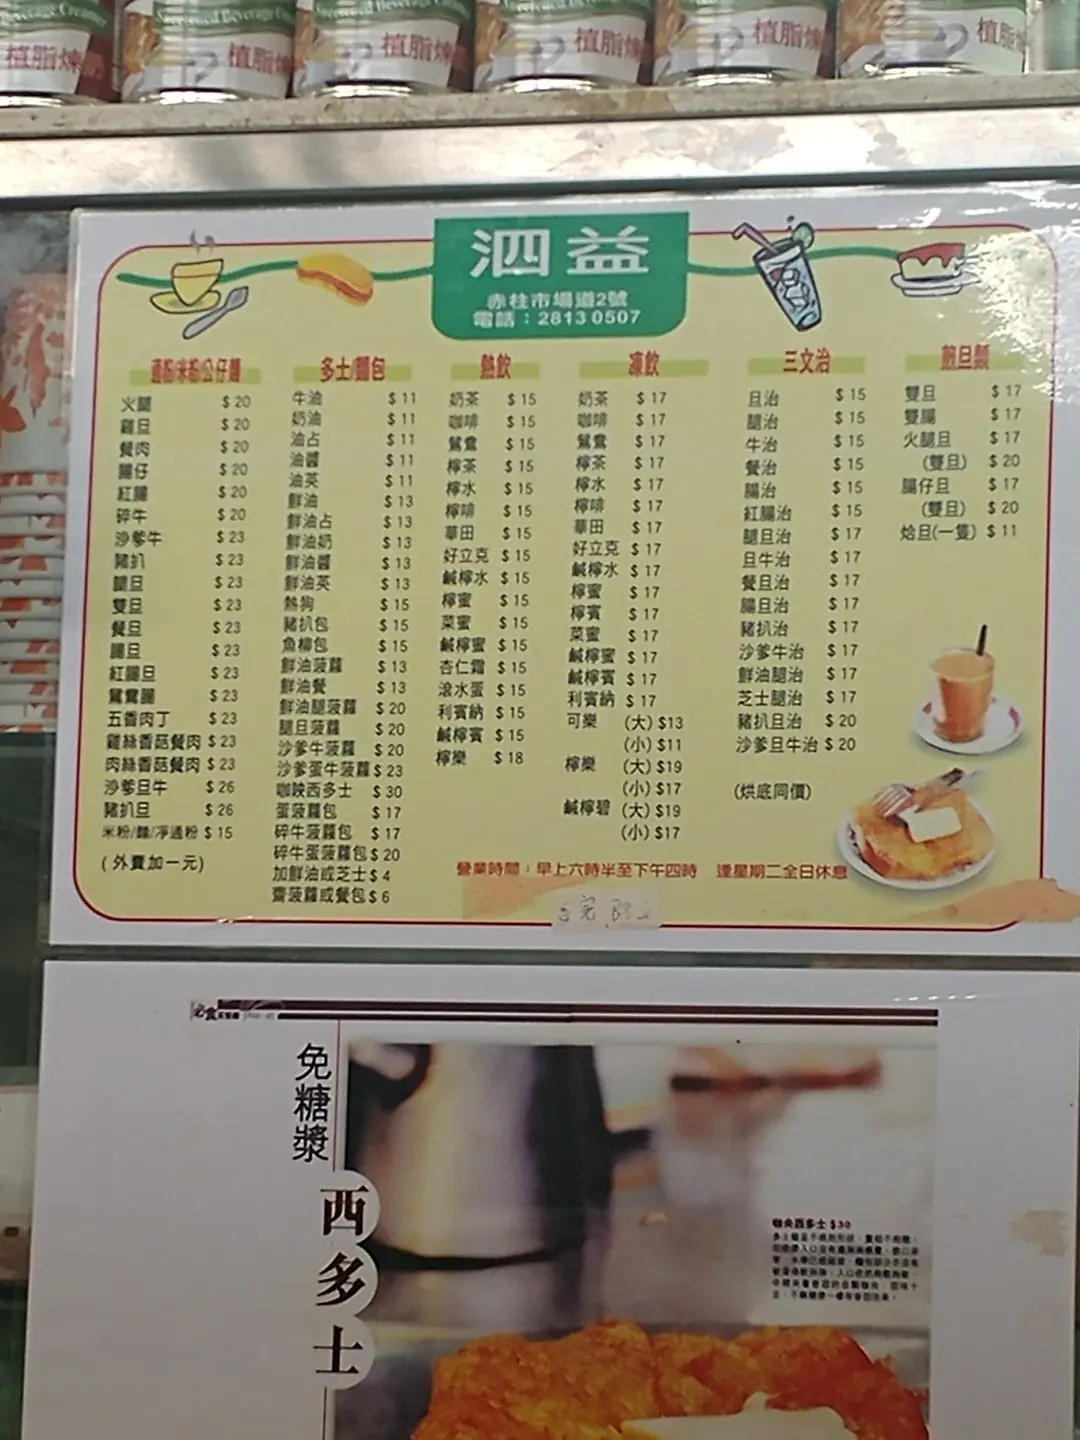 Sweetened Beverage Creamer
植脂煉
植脂煉
植脂煉
植脂煉
植脂煉
植脂
泗益
赤柱市場道2號
電話：2813 0507
通粉/米粉/公仔麵
火腿 $20
雞旦 $20
餐肉 $20
腸仔 $20
紅腸 $20
碎牛 $20
沙爹牛 $23
豬扒 $23
腿旦 $23
雙旦 $23
餐旦 $23
腸旦 $23
紅腸旦 $23
鴛鴦腸 $23
五香肉丁 $23
雞絲香菇餐肉 $23
肉絲香菇餐肉 $23
沙爹旦牛 $26
豬扒旦 $26
米粉/麵/淨通粉 $15
(外賣加一元)
多士/麵包
牛油 $11
奶油 $11
油占 $11
油醬 $11
油英 $11
鮮油 $13
鮮油占 $13
鮮油奶 $13
鮮油醬 $13
鮮油英 $13
熱狗 $15
豬扒包 $15
魚柳包 $15
鮮油菠蘿 $13
鮮油餐 $13
鮮油腿菠蘿 $20
腿旦菠蘿 $20
沙爹牛菠蘿 $20
沙爹蛋牛菠蘿 $23
咖央西多士 $30
蛋菠蘿包 $17
碎牛菠蘿包 $17
碎牛蛋菠蘿包 $20
加鮮油或芝士 $4
齋菠蘿或餐包 $6
熱飲
奶茶 $15
咖啡 $15
鴛鴦 $15
檸茶 $15
檸水 $15
檸啡 $15
華田 $15
好立克 $15
鹹檸水 $15
檸蜜 $15
菜蜜 $15
鹹檸蜜 $15
杏仁霜 $15
滾水蛋 $15
利賓納 $15
鹹檸賓 $15
檸樂 $18
凍飲
奶茶 $17
咖啡 $17
鴛鴦 $17
檸茶 $17
檸水 $17
檸啡 $17
華田 $17
好立克 $17
鹹檸水 $17
檸蜜 $17
檸賓 $17
菜蜜 $17
鹹檸蜜 $17
鹹檸賓 $17
利賓納 $17
可樂 (大) $13
(小) $11
檸樂 (大) $19
(小) $17
鹹檸碧 (大) $19
(小) $17
三文治
旦治 $15
腿治 $15
牛治 $15
餐治 $15
腸治 $15
紅腸治 $15
腿旦治 $17
旦牛治 $17
餐旦治 $17
腸旦治 $17
豬扒治 $17
沙爹牛治 $17
鮮油腿治 $17
芝士腿治 $17
豬扒旦治 $20
沙爹旦牛治 $20
(烘底同價)
煎旦類
雙旦 $17
雙腸 $17
火腿旦 $17
(雙旦) $20
腸仔旦 $17
(雙旦) $20
烚旦(一隻) $11
營業時間：早上六時半至下午四時 逢星期二全日休息
必食
免糖漿
西多士
咖央西多士 $30